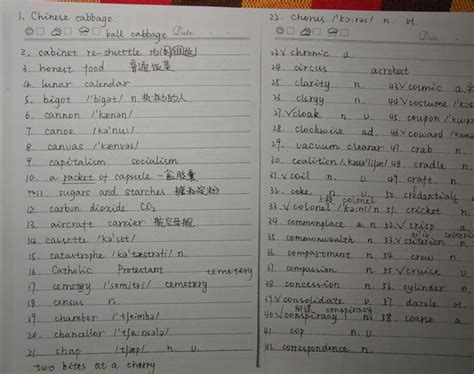 1. Chinese cabbage
ball cabbage
Date
2. cabinet re-shuttle 内阁
3. honest food 普通饭菜
4. lunar calendar
5. bigot /'bigət/ n. 抱有的人
6. cannon /'kænən/
7. canoe /kə'nu:/
8. canvas /'kænvəs/
9. capitalism socialism
10. a packet of capsule 一盒胶囊
*11 sugars and starches 糖和淀粉
12. carbon dioxide CO₂
13. aircraft carrier 航空母舰
14. cassette /kə'set/
15. catastrophe /kə'tæstrəfi/ n.
16. Catholic Protestant cemetery
17. cemetery /'semitri/ cemetery
18. census n.
19. chamber /'tʃeimbə/
20. chancellor /'tʃa:nsələ/
21. chap /tʃæp/ n. v.
two bites at a cherry
22. chorus /'kɔ:rəs/ n. vt.
Date
23.√ chronic a.
24. circus acrobat
25. clarity n.
26. clergy n.
27.√ cloak n. v.
28. clockwise ad.
29. vacuum cleaner
30. coalition n.
31.√ coil n. v.
32. coke n. 上校 colonel
33.√ colonel /'kə:nl/ n.
34. commonplace a. n.
35. commonwealth n.
36. compartment n.
37. compassion n.
38. concession n.
39.√ consolidate v.
40.√ conspiracy n. 阴谋 conspiracy
41. cop n. v.
42. correspondence n.
43.√ cosmic a.
44.√ costume
45. coupon
46.√ coward
47. crab n.
48. cradle n.
49. craft n.
50. credentials
51. cricket n.
52.√ crisp a.
53.√ criterion n.
54. crow n.
55.√ cruise v.
56. cylinder n.
57. dazzle vt.
58. coarse a.